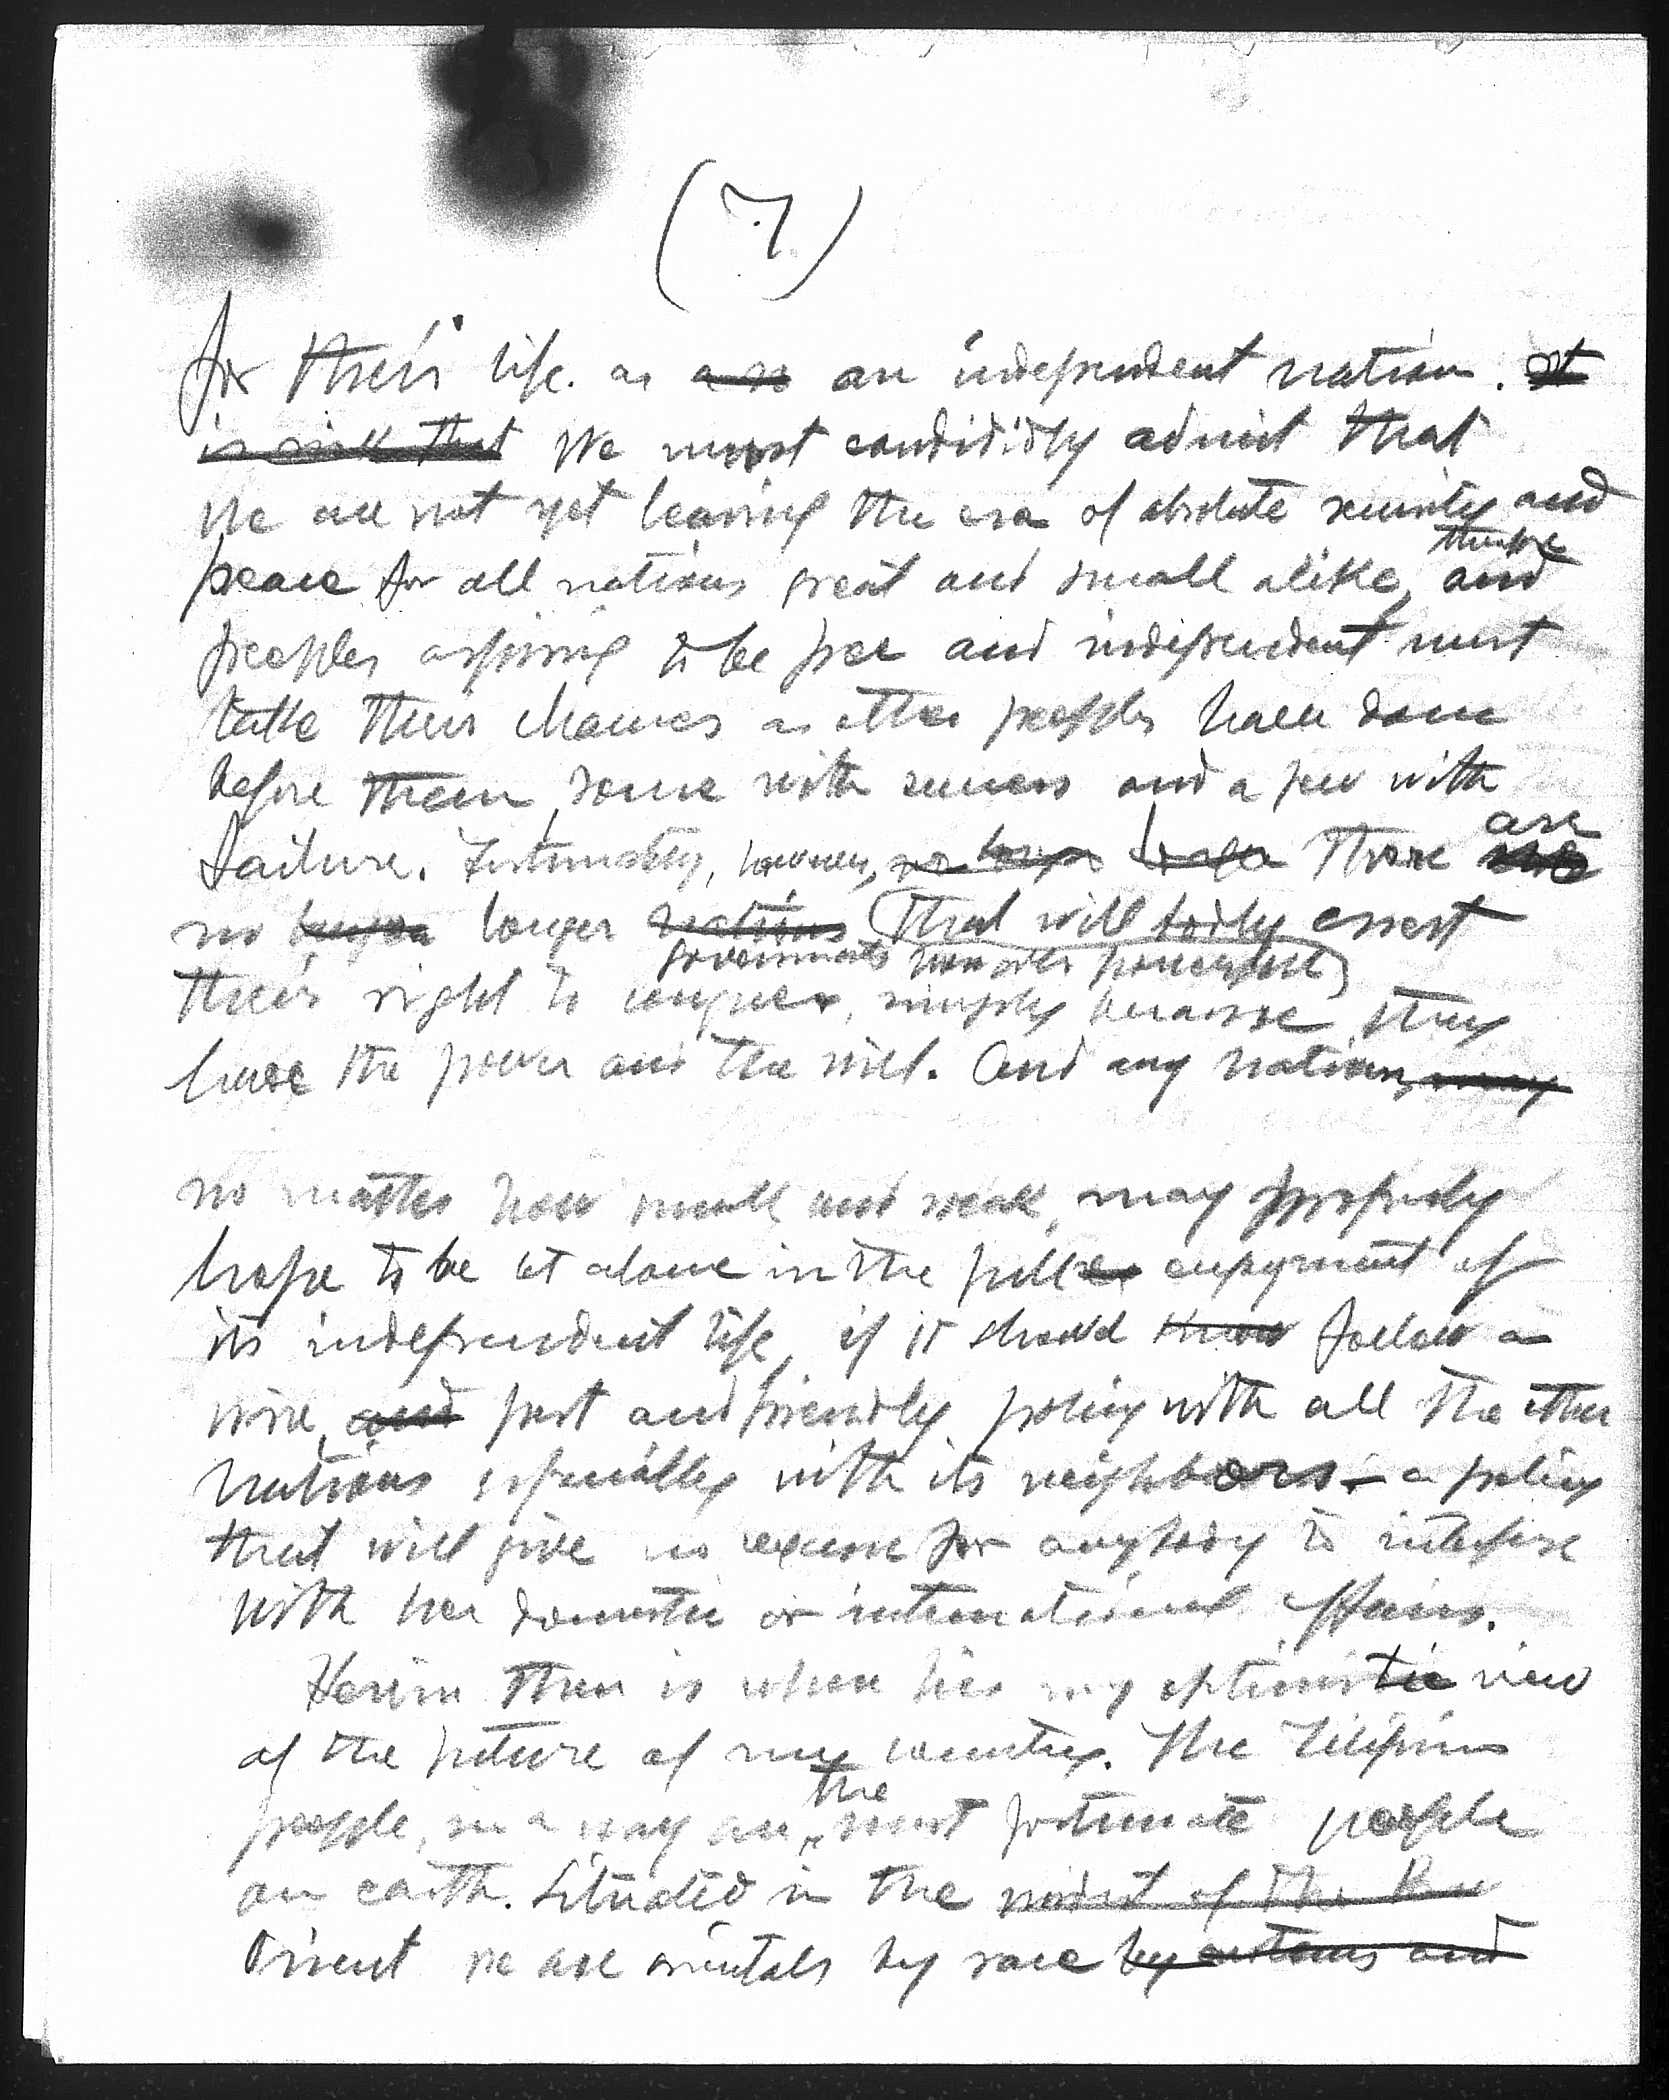 (7)
for their life as an independent nation.
We must candididly admit that
We are not yet leaving the era of absolute security and
peace for all nations great and small alike, and therefore
peoples aspiring to be free and independent must
take their chances as other peoples have done
before them, some with success and a few with
failure. Fortunately, however, there are
no longer governments however powerful that will boldly assert
their right to conquer, simply because they
have the power and the will. And any nation,
no matter how small and weak, may properly
hope to be let alone in the full enjoyment of
its independent life, if it should follow a
wise, just and friendly policy with all the other
nations especially with its neighbors - a policy
that will give no excuse for anybody to interfere
with her domestic or international affairs.
Herein then is where lies my optimistic view
of the future of my country. The Filipino
people, in a way are the most fortunate people
on earth. Situated in the
Orient we are orientals by race